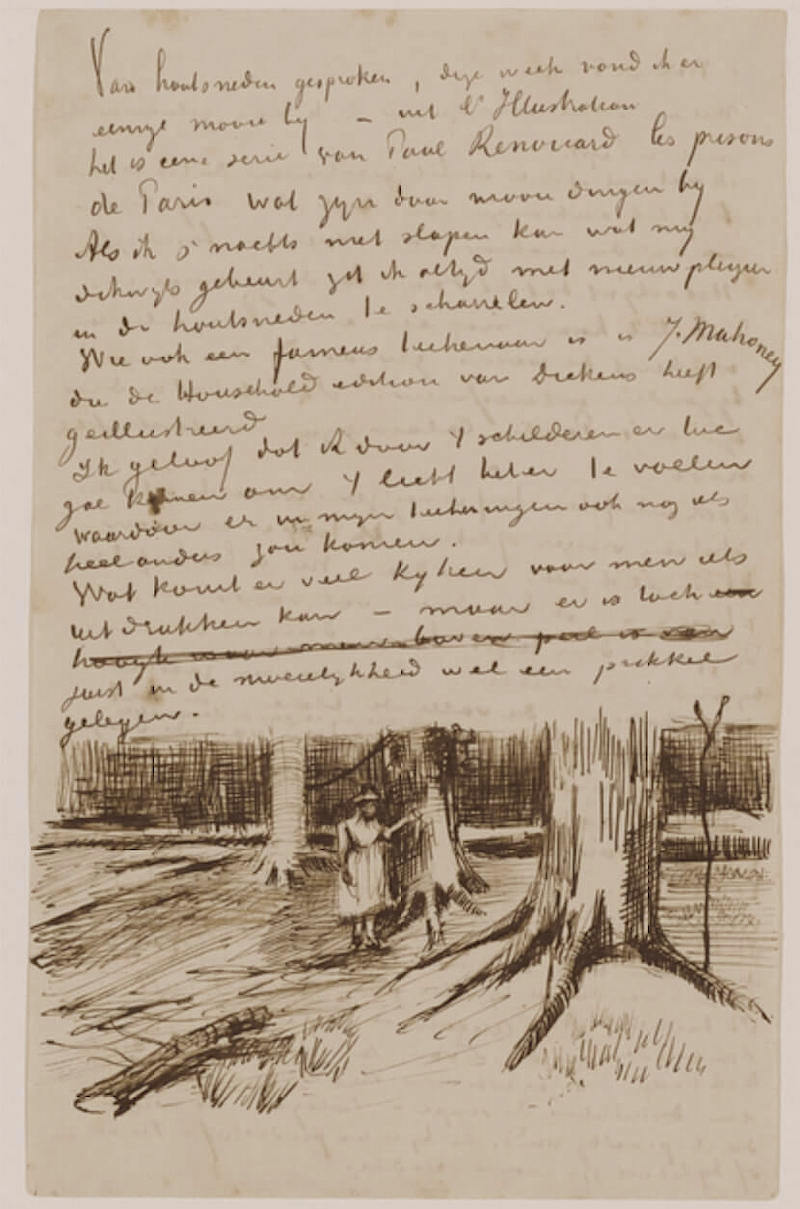 Van houtsneden gesproken, deze week vond ik er
eenige mooie bij – uit l'Illustration
het is eene serie van Paul Renouard les prisons
de Paris wat zijn daar mooie dingen bij
Als ik 's nachts niet slapen kan wat mij
dikwijls gebeurt zit ik altijd met nieuw pleizier
in de houtsneden te scharrelen.
Wie ook een fameus teekenaar is is J. Mahoney
die de Household edition van Dickens heeft
geillustreerd
Ik geloof dat ik door 't schilderen er toe
zal komen om 't licht beter te voelen
waardoor er in mijn teekeningen ook nog iets
heel anders zou komen.
Wat komt er veel kyken voor men iets
uitdrukken kan – maar er is toch
juist in de moeielijkheid wel een prikkel
gelegen.